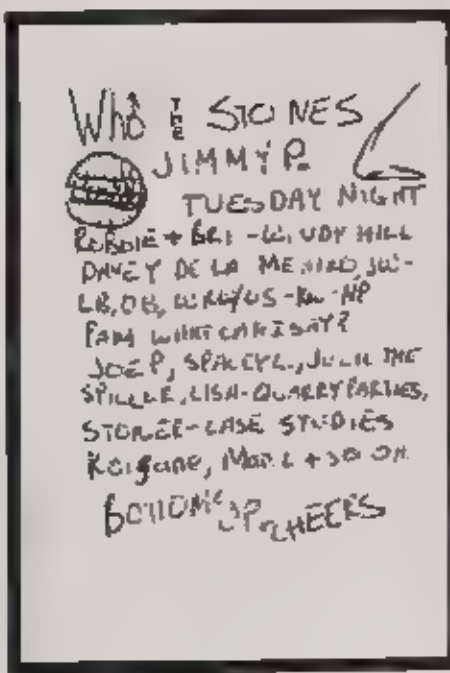 Who THE STONES
JIMMY P.
TUESDAY NIGHT
ROBBIE + BRI - WINDY HILL
DAVEY DE LA
LB, OB,
PAM WHAT CAN I SAY?
JOE P, SPACEY L., JULIE THE
SPILLER, LISA-QUARRY PARTIES,
STONER-CASE STUDIES
+ SO ON
BOTTOMS UP. CHEERS